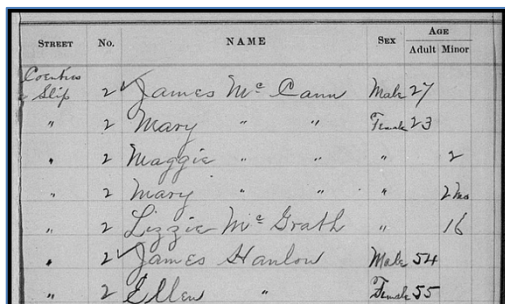 AGE
STREET No. NAME SEX Adult Minor
Coenties
Slip 2 ✓ James Mc Cann Male 27
" 2 Mary " " Female 23
" 2 Maggie " " " 2
" 2 Mary " " " 2 mo
" 2 Lizzie Mc Grath " 16
" 2 ✓ James Hanlon Male 54
" 2 Ellen " Female 55